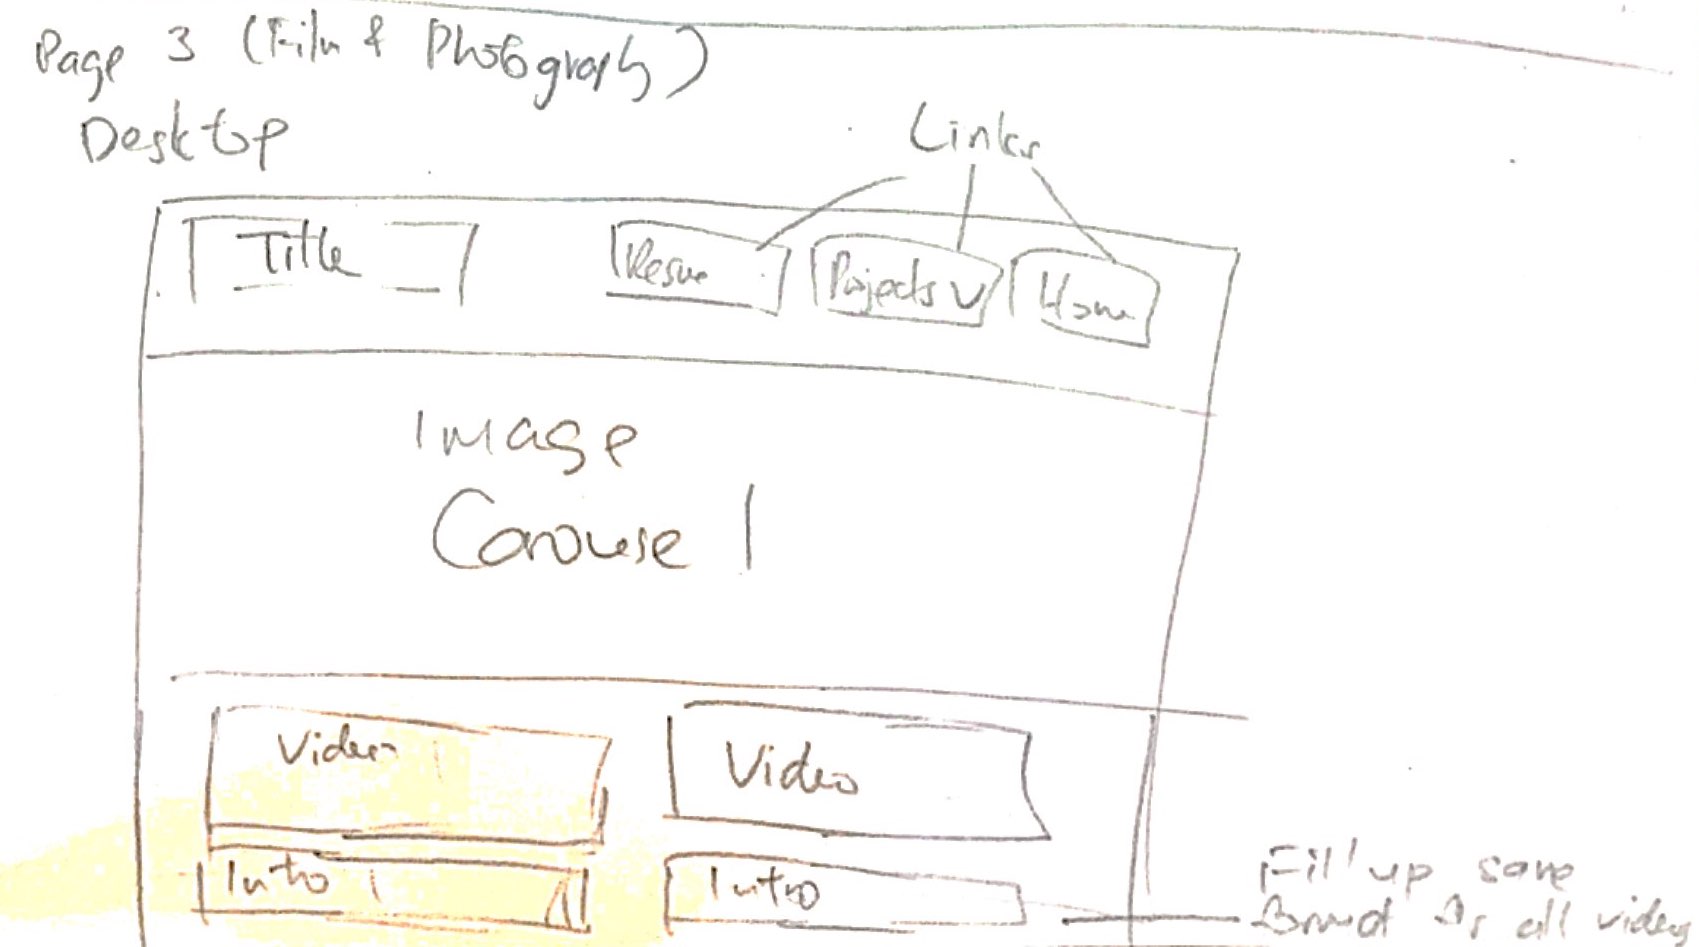 Page 3 (Film & Photography)
Desktop
Links
Title
Resume
Projects
Home
Image
Carousel
Video
Video
Intro
Intro
Fill up same
for all videos